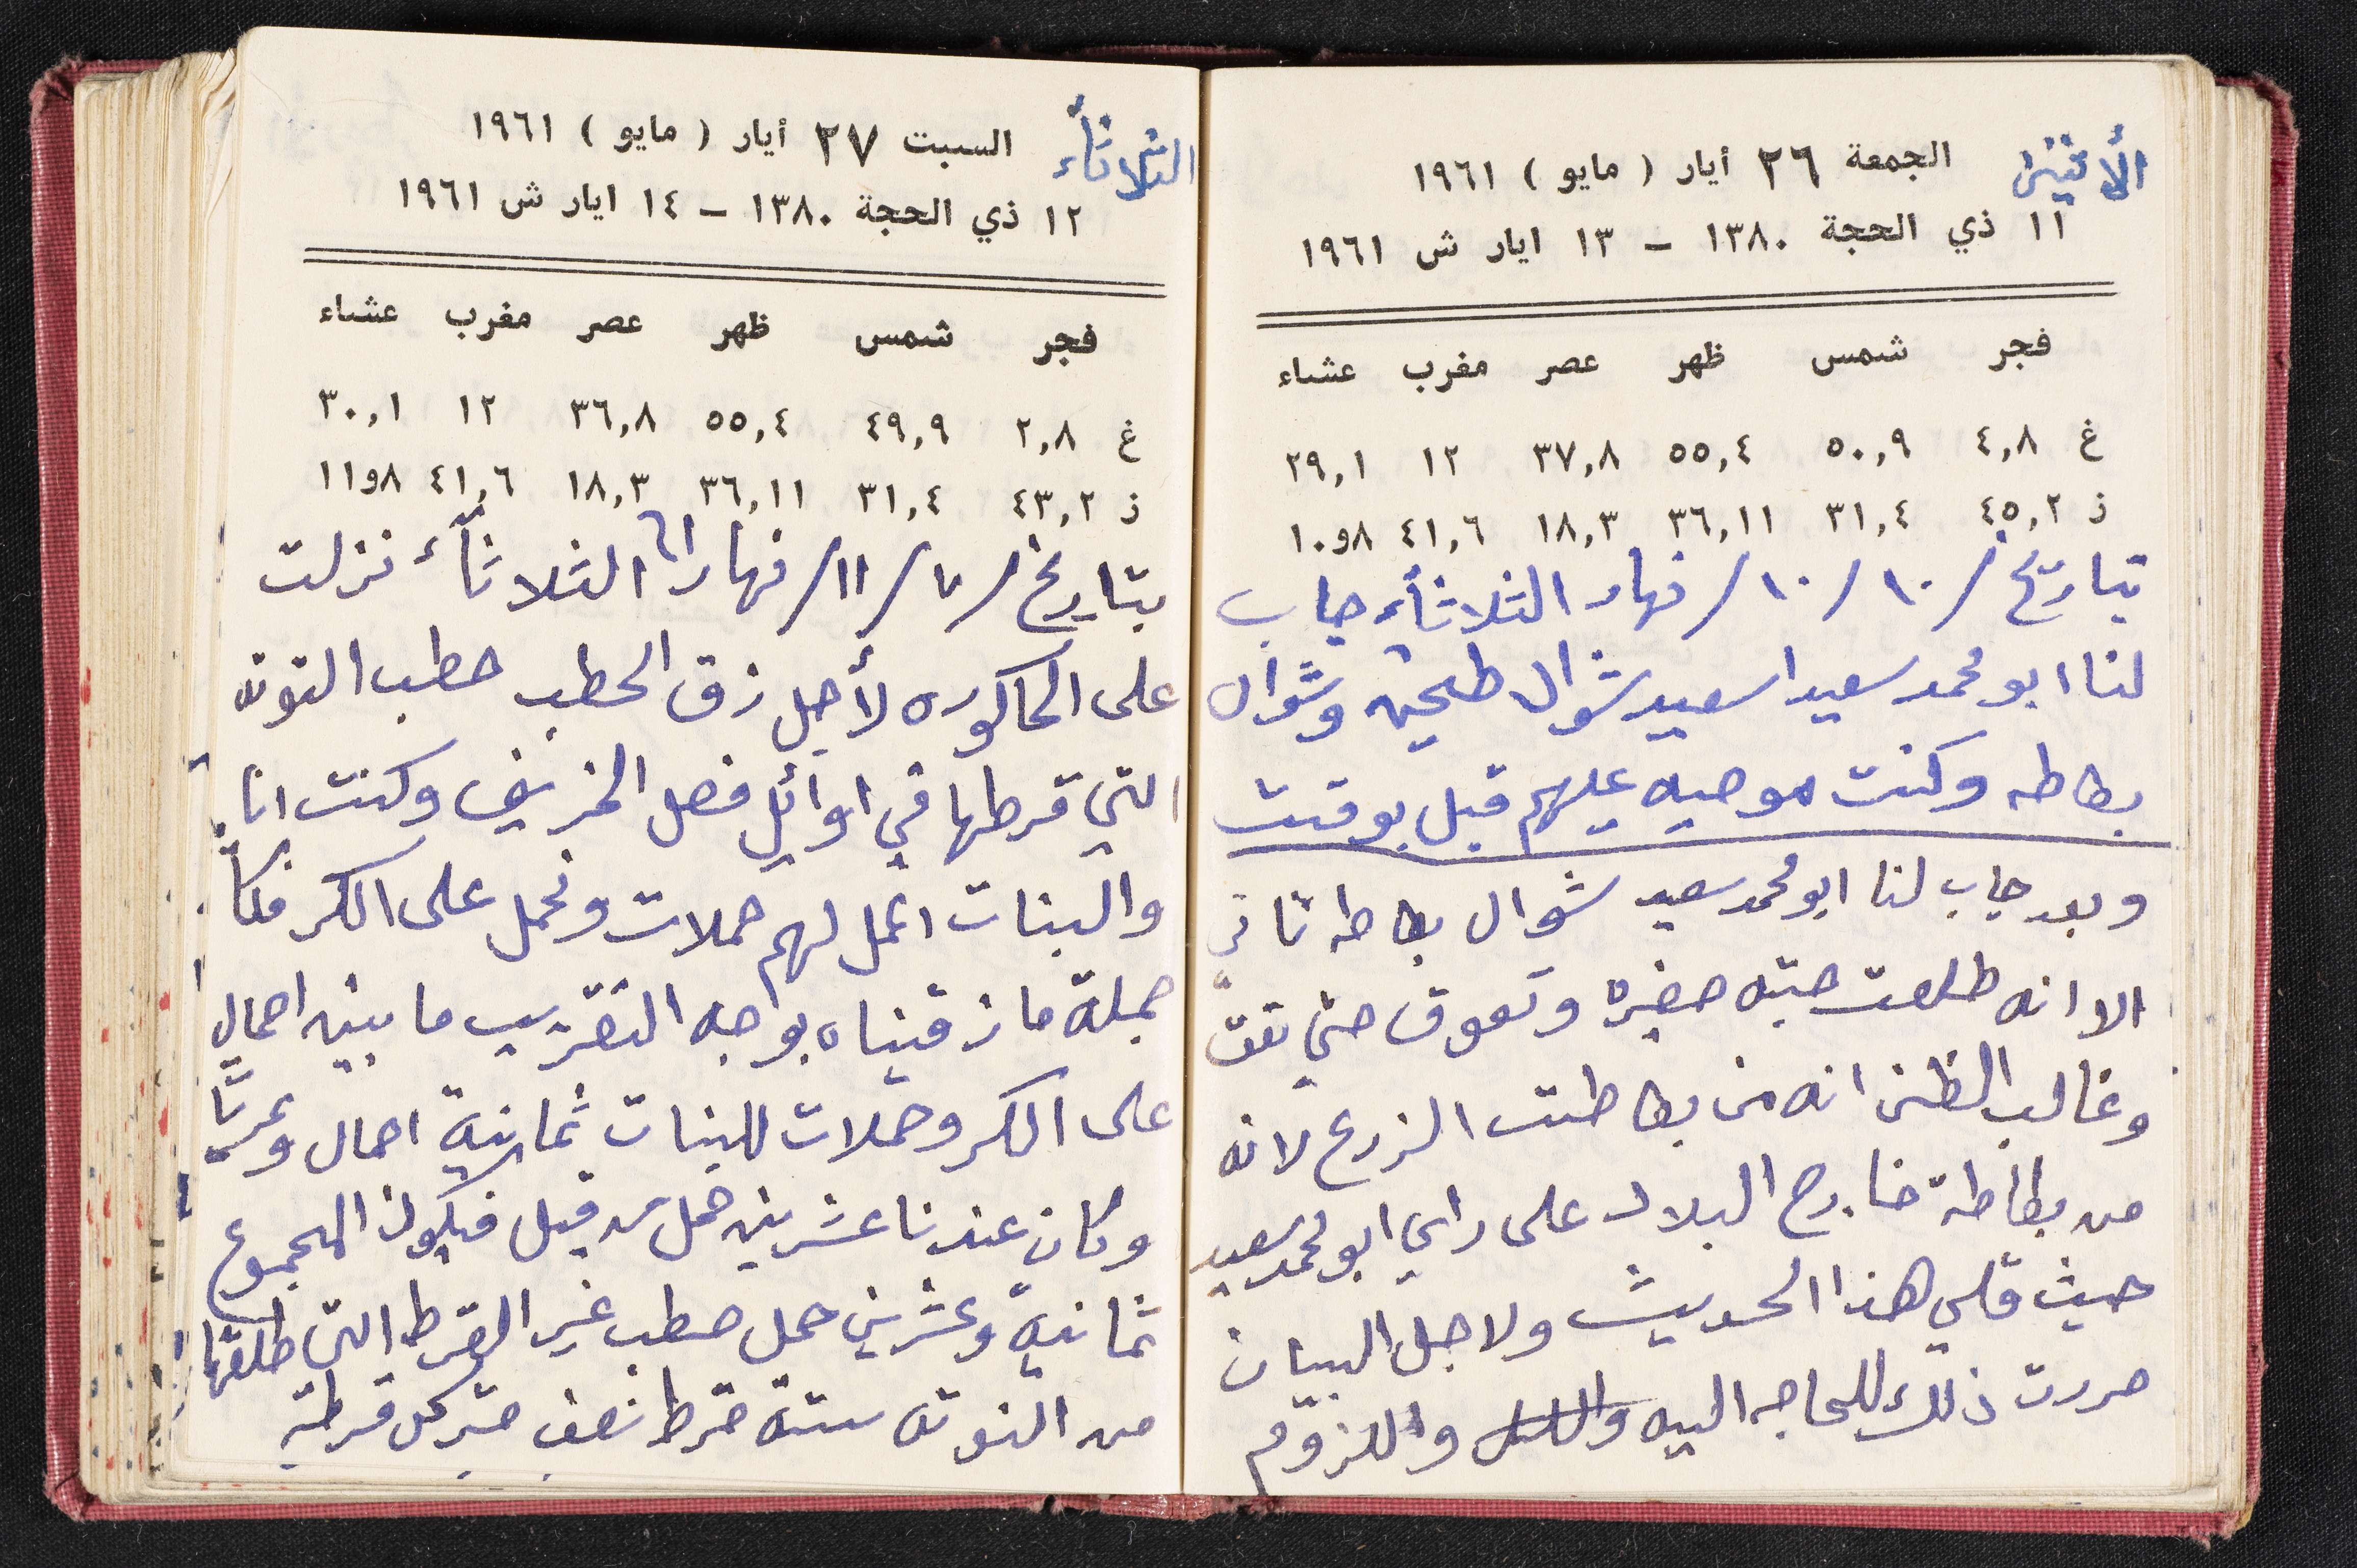 الأثنين
الجمعة ٢٦ أيار ( مايو ) ١٩٦١
١١ ذي الحجة ١٣٨٠ – ١٣ ايار ش ١٩٦١
فجر شمس ظهر عصر مغرب عشاء
غ ٤,٨ ٥٠,٩ ٥٥,٤ ٣٧,٨ ١٢ ٢٩,١
ذ ٤٥,٢ ٣١,٤ ٣٦,١١ ١٨,٣ ٤١,٦ ١٠و٨
بتاريخ /١٠/١٠/ نهار الثلاثأء جاب
لنا ابو محمد سعيد اسعيد شوال طحين وشوال
بطاطه وكنت موصيه عليهم قبل بوقت
وبعد جاب لنا ابو محمد سعيد شوال بطاطه ثاني
الا انه طلعت حبته صغيره وتعوق حتى
وغالب الظن انه من بطاطت الزرع لانه
من بطاطة خارج البلاد على راي ابو محمد سعيد
حيث قلي هذا الحديث ولاجل البيان
حررت ذلك للحاجه اليه واللزوم
الثلاثأء
السبت ٢٧ أيار ( مايو ) ١٩٦١
١٢ ذي الحجة ١٣٨٠ – ١٤ ايار ش ١٩٦١
فجر شمس ظهر عصر مغرب عشاء
غ ٢,٨ ٤٩,٩ ٥٥,٤ ٣٦,٨ ١٢ ٣٠,١
ذ ٤٣,٢ ٣١,٤ ٣٦,١١ ١٨,٣ ٤١,٦ ١١و٨
بتاريخ /٧/١١/٦١ نهار الثلاثأء نزلت
على الحاكوره لأجل زق الحطب حطب التوته
التي قرطها في اوائل فصل الخريف وكنت انا
والبنات اعمل لهم حملات ونحمل على الكر فكان
جملة ما زقيناه بواجه التقريب ما بين احمال
على الكر وحملات للبنات ثمانية احمال
وكان عندنا عشرين حمل من قبل فيكون المجموع
ثمانية وعشرين حمل حطب غير القرط التي طلعتها
من التوته ستة قرط نصف متر كل قرطة